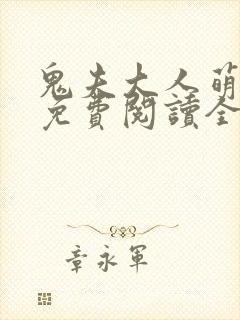 鬼夫大人萌
免費閱讀全
章永軍